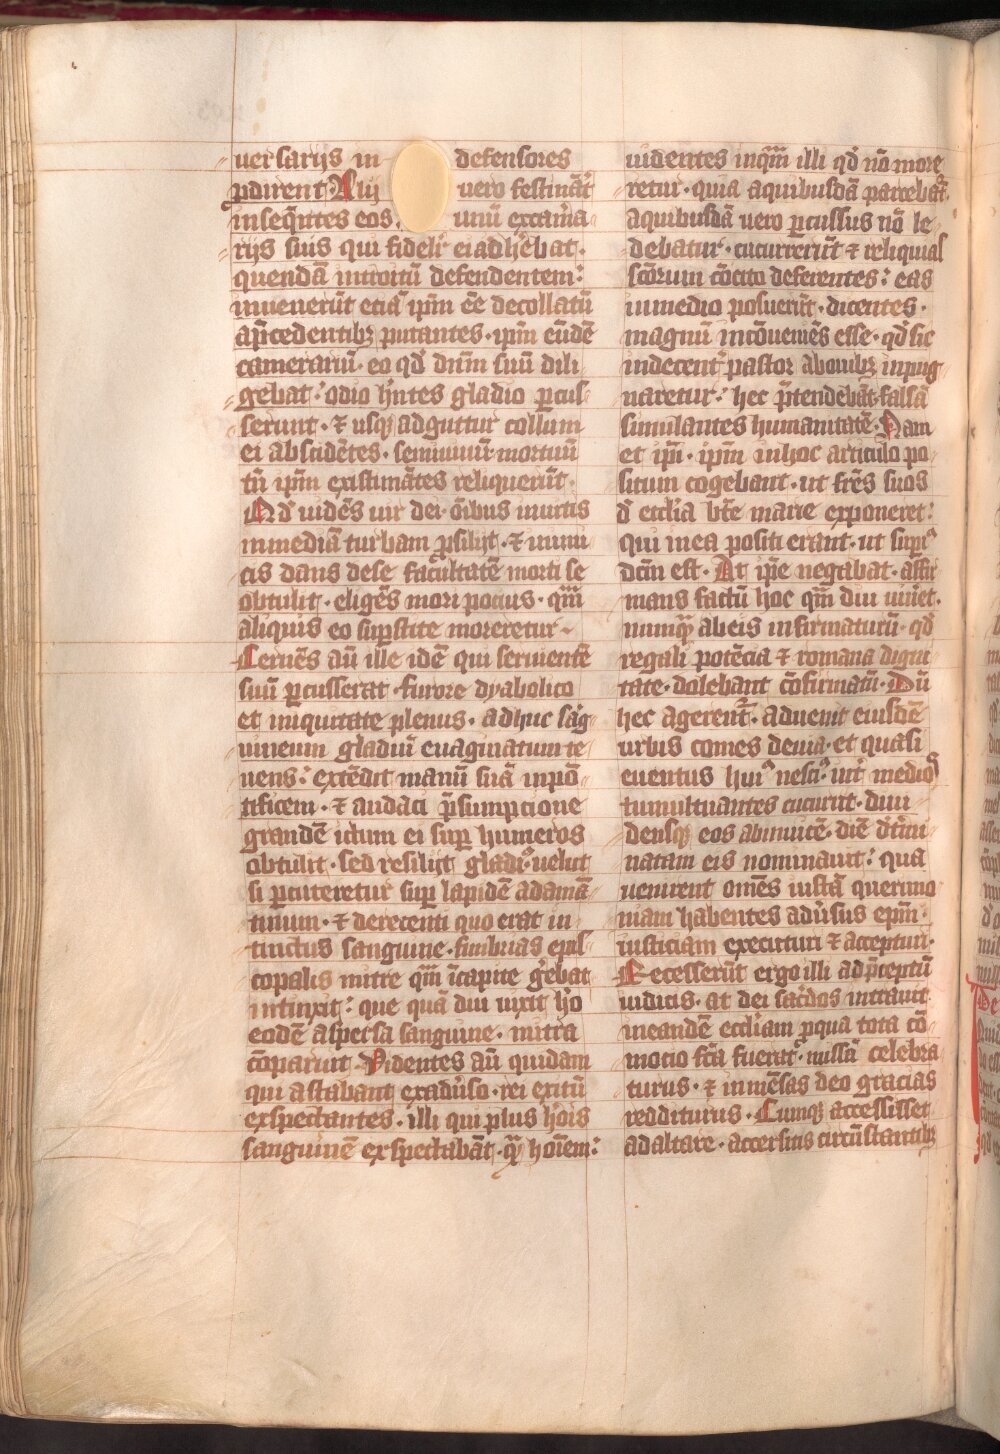 uersarijs in defensores
ꝑdirent Alij uero festinãt
inseq̃ntes eos, unũ ex cam̃a
rijs suis qui fideli ei adhebat.
quendã introitũ defendentem:
inuenerũt etiã ip̃m eẽ decollatũ
ap̃cedentibꝫ putantes. ip̃m eũdẽ
camerariũ. eo qđ dñm suũ dili
gebat: odio hñtes gladio ꝑcus
serunt. ⁊ usqꝫ ad guttur collum
ei abscidẽtes. semiuiuũ mortuũ
tñ ip̃m existimãtes reliquerũt.
Qđ uidẽs uir dei. õibus inuitis
in mediã turbam ꝓsilijt. ⁊ inimi
cis dans de se facultatẽ morti se
obtulit. eligẽs mori pocius. q̃m
aliquis eo suꝑstite moreretur
Cernẽs aũ ille idẽ qui seruientẽ
suũ ꝑcusserat. furore dyabolico
et iniquitate plenus. adhuc sãg
uineum gladiũ euaginatum te
nens: extẽdit manũ suã in põ
tificem. ⁊ audaci p̃sumpcione
grandẽ ictum ei suꝑ humeros
obtulit. sed resilijt gladiꝰ uelut
si ꝑcuteretur suꝑ lapidẽ adamã
tinum. ⁊ de recenti quo erat in
tinctus sanguine. fimbrias epis
copalis mitre q̃m ĩ capite gerebat
intinxit: que quã diu uixit hõ
eodẽ aspersa sanguine. mitra
cõparuit. Videntes aũ quidam
qui astabant ex aduerso. rei exitũ
exspectantes. illi qui plus hõis
sanguinẽ exspectabãt. q̃ hoĩem:
uidentes inq̃m illi qđ nõ more
retur. quia a quibusdã parcebat̃.
a quibusdã uero ꝑcussus nõ le
debatur. cucurrerũt ⁊ reliquias
sc̃orum cõcito deferentes: eas
in medio posuerũt. dicentes.
magnũ incõueniẽs esse. qđ sic
indecenter pastor ab ouibꝫ inpug
naretur: hec p̃tendebãt falsã
simulantes humanitatẽ. Nam
et ip̃i. ip̃m in hoc articulo po
situm cogebant. ut fr̃es suos
đ eccl̃ia bt̃e marie exponeret:
qui in ea positi erant. ut supiꝰ
dc̃m est. At ip̃e negabat. affir
mans factũ hoc q̃m diu uiuet.
numq̃ ab eis infirmaturũ. qđ
regali potẽcia ⁊ romana digni
tate. dolebant cõfirmatũ. Dũ
hec agerent̃. aduenit eiusdẽ
urbis comes deuia. et quasi
euentus huiꝰ nesciꝰ. inter medios
tumultuantes cucurrit. diui
densqꝫ eos ab inuicẽ. diẽ đtmi
natam eis nominauit: qua
uenirent omẽs iustã querimo
niam habentes aduersus ep̃m.
iusticiam executuri ⁊ accepturi.
Recesserũt ergo illi ad p̃ceptũ
iudicis. at dei sac̃dos intrauit
in eandẽ eccl̃iam ꝑ qua tota cõ
mocio fc̃a fuerat. missã celebra
turus. ⁊ inmẽsas deo gracias
redditurus. Cumqꝫ accessisset
ad altare. accersitis circũstantibꝫ